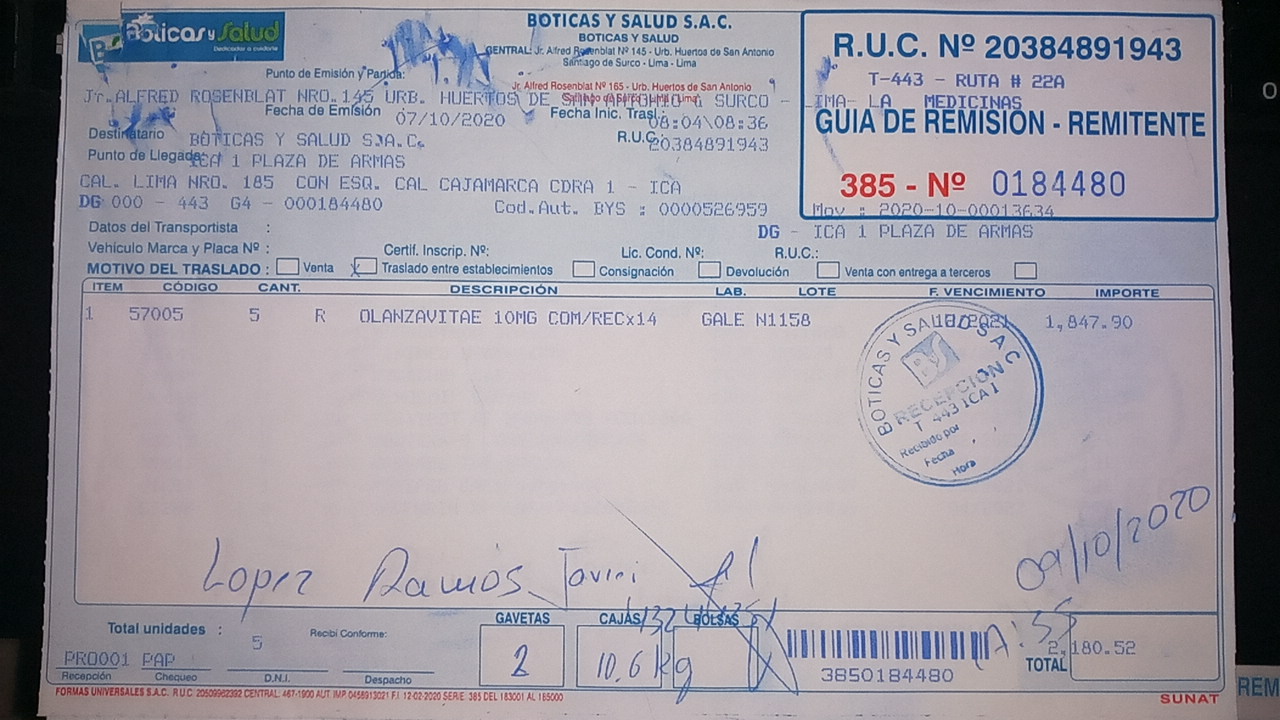 Boticas y Salud
Dedicados a cuidarte
BOTICAS Y SALUD S.A.C.
BOTICAS Y SALUD
CENTRAL: Jr. Alfred Rosenblat Nº 145 - Urb. Huertos de San Antonio
Santiago de Surco - Lima - Lima
Jr. Alfred Rosenblat Nº 165 - Urb. Huertos de San Antonio
R.U.C. Nº 20384891943
T-443 - RUTA # 22A
Punto de Emisión y Partida:
Jr.ALFRED ROSENBLAT NRO.145 URB. HUERTOS DE SAN ANTONIO & SURCO - LIMA- LA MEDICINAS
Fecha de Emisión 07/10/2020 Fecha Inic. Trasl. 08:04\08:36
GUIA DE REMISION - REMITENTE
Destinatario BOTICAS Y SALUD S.A.C. R.U.C. 20384891943
Punto de Llegada: ICA 1 PLAZA DE ARMAS
CAL. LIMA NRO. 185 CON ESQ. CAL CAJAMARCA CDRA 1 - ICA
385 - Nº 0184480
DG 000 - 443 G4 - 000184480 Cod.Aut. BYS : 0000526959
Mov : 2020-10-00013634
Datos del Transportista :
DG - ICA 1 PLAZA DE ARMAS
Vehículo Marca y Placa Nº : Certif. Inscrip. Nº: Lic. Cond. Nº: R.U.C.:
MOTIVO DEL TRASLADO : Venta X Traslado entre establecimientos Consignación Devolución Venta con entrega a terceros
ITEM CÓDIGO CANT. DESCRIPCIÓN LAB. LOTE F. VENCIMIENTO IMPORTE
1 57005 5 R OLANZAVITAE 10MG COM/RECx14 GALE N1158 1,847.90
BOTICAS Y SALUD S A C
BYS
RECEPCIÓN
T 443 ICA I
Recibido por
Fecha
Hora
09/10/2020
Lopez Ramos
Total unidades : 5
Recibí Conforme:
GAVETAS CAJAS BOLSAS
2 10.6 kg
PRO001 PAP
Recepción Chequeo D.N.I. Despacho
3850184480
TOTAL 2,180.52
FORMAS UNIVERSALES S.A.C. R.U.C. 20509962392 CENTRAL: 467-1900 AUT. IMP. 0458913021 F.I. 12-02-2020 SERIE: 385 DEL 183001 AL 185000
SUNAT
REM